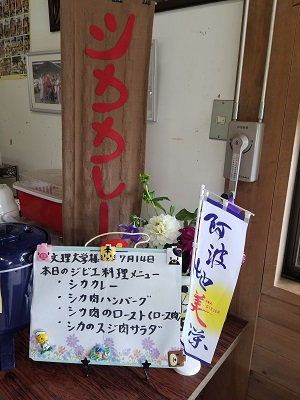 シカカレー
文理大学様 7月14日
本日のジビエ料理メニュー
・シカカレー
・シカ肉ハンバーグ
・シカ肉のロースト(ロース肉)
・シカのスジ肉サラダ
阿波地美栄